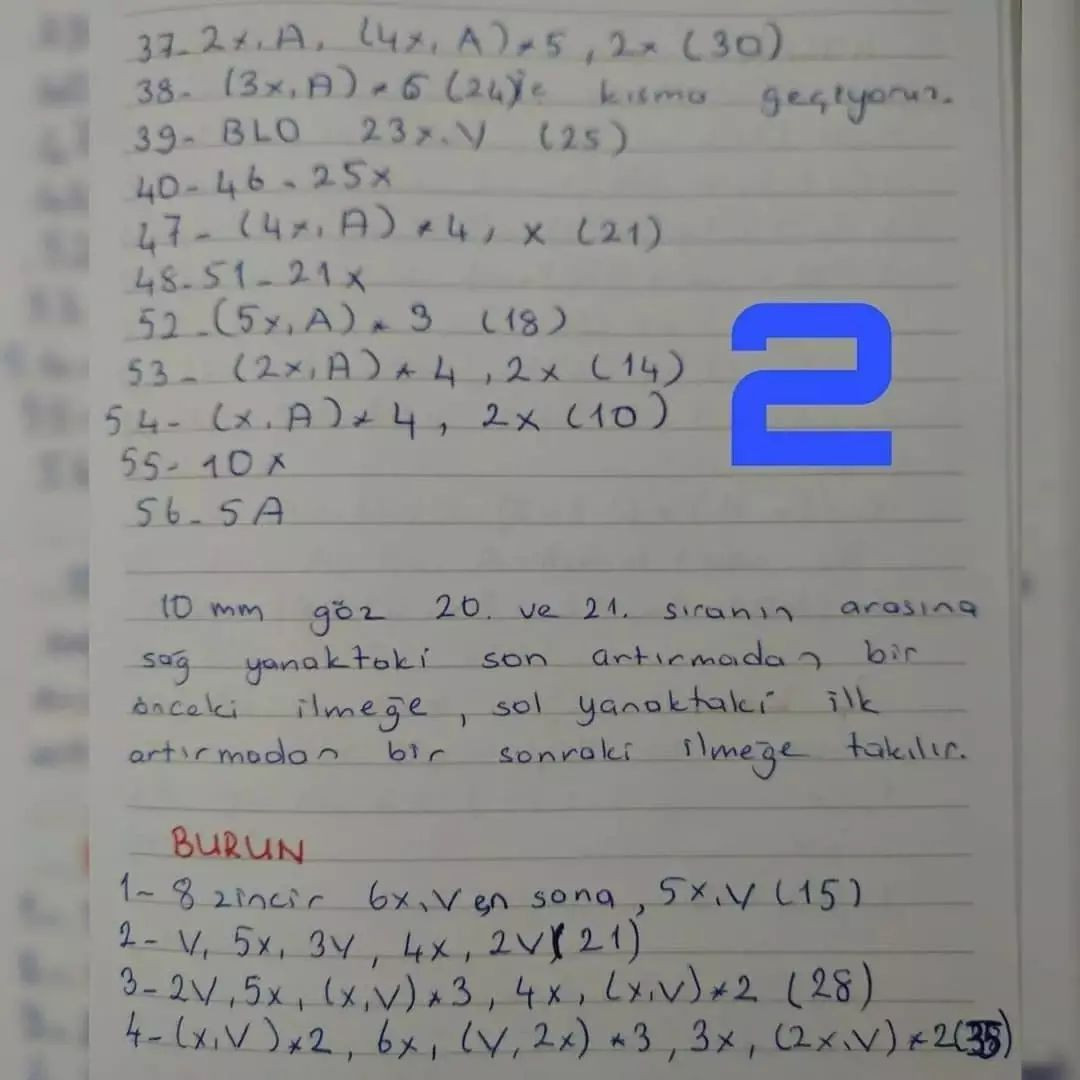 37- 2x, A, (4x, A)*5, 2x (30)
38- (3x, A)*6 (24) kısma geçiyoruz.
39- BLO 23x, V (25)
40-46- 25x
47- (4x, A)*4, x (21)
48-51- 21x
52- (5x, A)*3 (18)
53- (2x, A)*4, 2x (14)
54- (x, A)*4, 2x (10)
55- 10x
56- 5A
2
10 mm göz 20. ve 21. sıranın arasına
sağ yanaktaki son artırmadan bir
önceki ilmeğe, sol yanaktaki ilk
artırmadan bir sonraki ilmeğe takılır.
BURUN
1- 8 zincir 6x, V en sona, 5x, V (15)
2- V, 5x, 3V, 4x, 2V (21)
3- 2V, 5x, (x, V)*3, 4x, (x, V)*2 (28)
4- (x, V)*2, 6x, (V, 2x)*3, 3x, (2x, V)*2 (35)